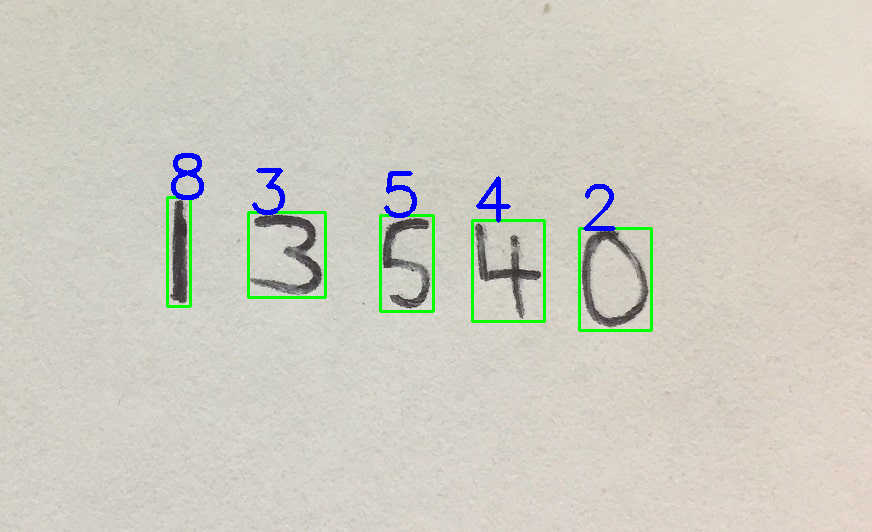 8 3 5 4 2
1 3 5 4 0